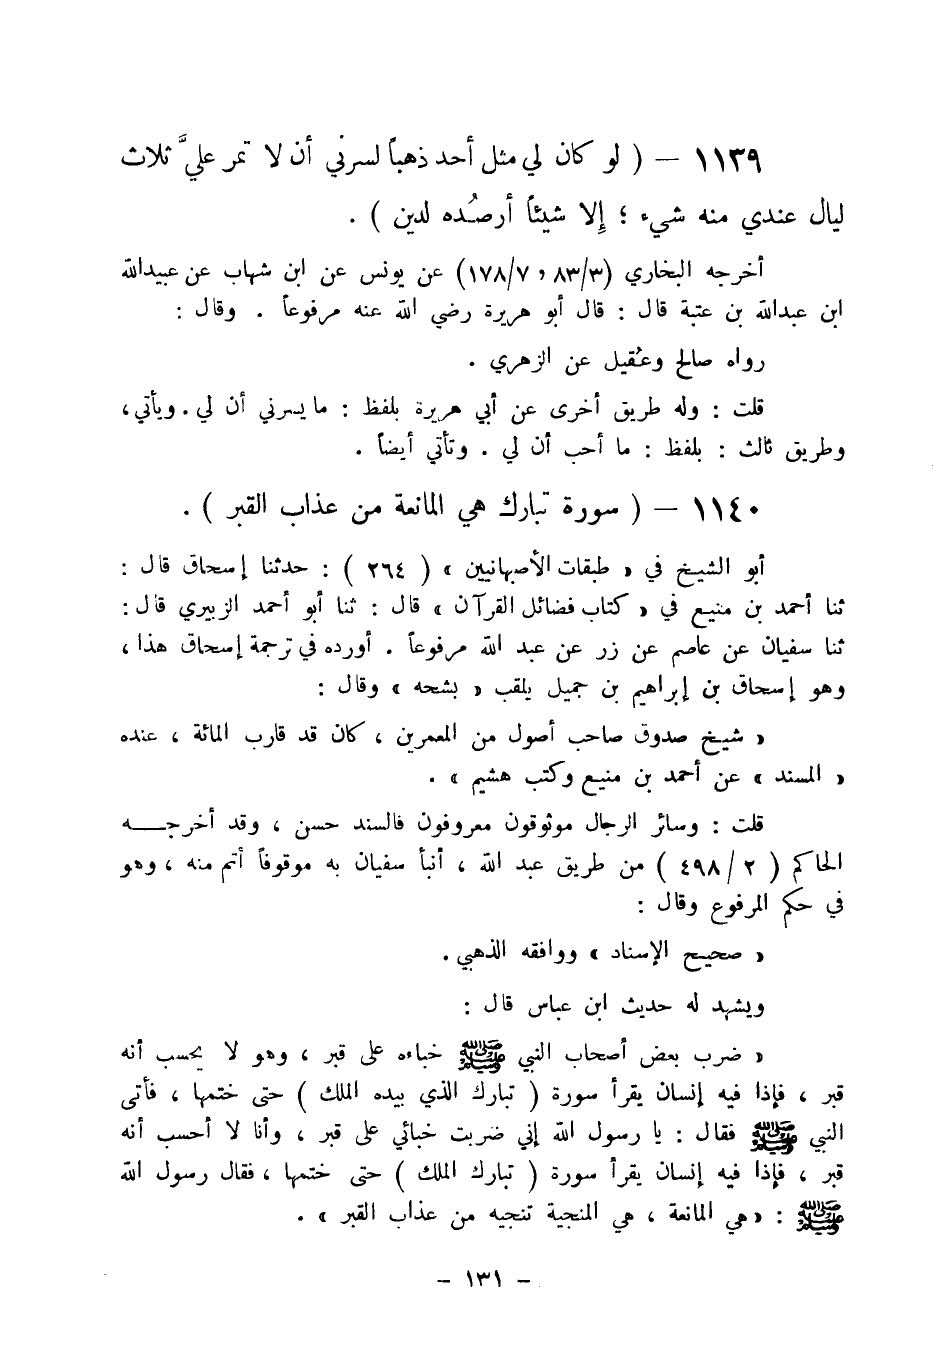 ١١٣٩ – ( لو كان لي مثل أحد ذهباً لسرني أن لا تمر عليَّ ثلاث
ليال عندي منه شيء ؛ إلا شيئاً أرصُده لدين ) .
أخرجه البخاري (٨٣/٣ ، ١٧٨/٧) عن يونس عن ابن شهاب عن عبيدالله
ابن عبدالله بن عتبة قال : قال أبو هريرة رضي الله عنه مرفوعاً . وقال :
رواه صالح وعُقيل عن الزهري .
قلت : وله طريق أخرى عن أبي هريرة بلفظ : ما يسرني أن لي . ويأتي ،
وطريق ثالث : بلفظ : ما أحب أن لي . وتأتي أيضاً .
١١٤٠ – ( سورة تبارك هي المانعة من عذاب القبر ) .
أبو الشيخ في « طبقات الأصبهانيين » ( ٢٦٤ ) : حدثنا إسحاق قال :
ثنا أحمد بن منيع في « كتاب فضائل القرآن » قال : ثنا أبو أحمد الزبيري قال :
ثنا سفيان عن عاصم عن زر عن عبد الله مرفوعاً . أورده في ترجمة إسحاق هذا ،
وهو إسحاق بن إبراهيم بن جميل يلقب « بشحه » وقال :
« شيخ صدوق صاحب أصول من المعمرين ، كان قد قارب المائة ، عنده
« المسند » عن أحمد بن منيع وكتب هشيم » .
قلت : وسائر الرجال موثوقون معروفون فالسند حسن ، وقد أخرجـــه
الحاكم ( ٢ / ٤٩٨ ) من طريق عبد الله ، أنبأ سفيان به موقوفاً أتم منه ، وهو
في حكم المرفوع وقال :
« صحيح الإسناد » ووافقه الذهبي .
ويشهد له حديث ابن عباس قال :
« ضرب بعض أصحاب النبي ﷺ خباءه على قبر ، وهو لا يحسب أنه
قبر ، فإذا فيه إنسان يقرأ سورة ( تبارك الذي بيده الملك ) حتى ختمها ، فأتى
النبي ﷺ فقال : يا رسول الله إني ضربت خبائي على قبر ، وأنا لا أحسب أنه
قبر ، فإذا فيه إنسان يقرأ سورة ( تبارك الملك ) حتى ختمها ، فقال رسول الله
ﷺ : « هي المانعة ، هي المنجية تنجيه من عذاب القبر » .
– ١٣١ –